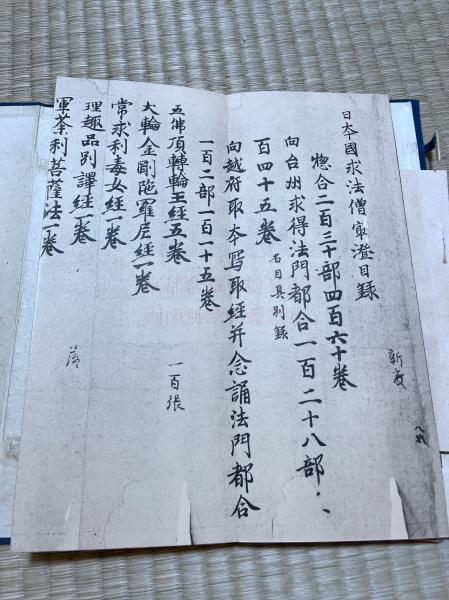 日本國求法僧最澄目録
惣合二百三十部四百六十卷
向台州求得法門都合一百二十八部、
百四十五卷 名目具別錄
向越府取本寫取經并念誦法門都合
一百二部一百一十五卷
五佛頂轉輪王經五卷 一百張
大輪金剛陁羅尼經一卷
常求利毒女經一卷
理趣品別譯經一卷
軍荼利菩薩法一卷